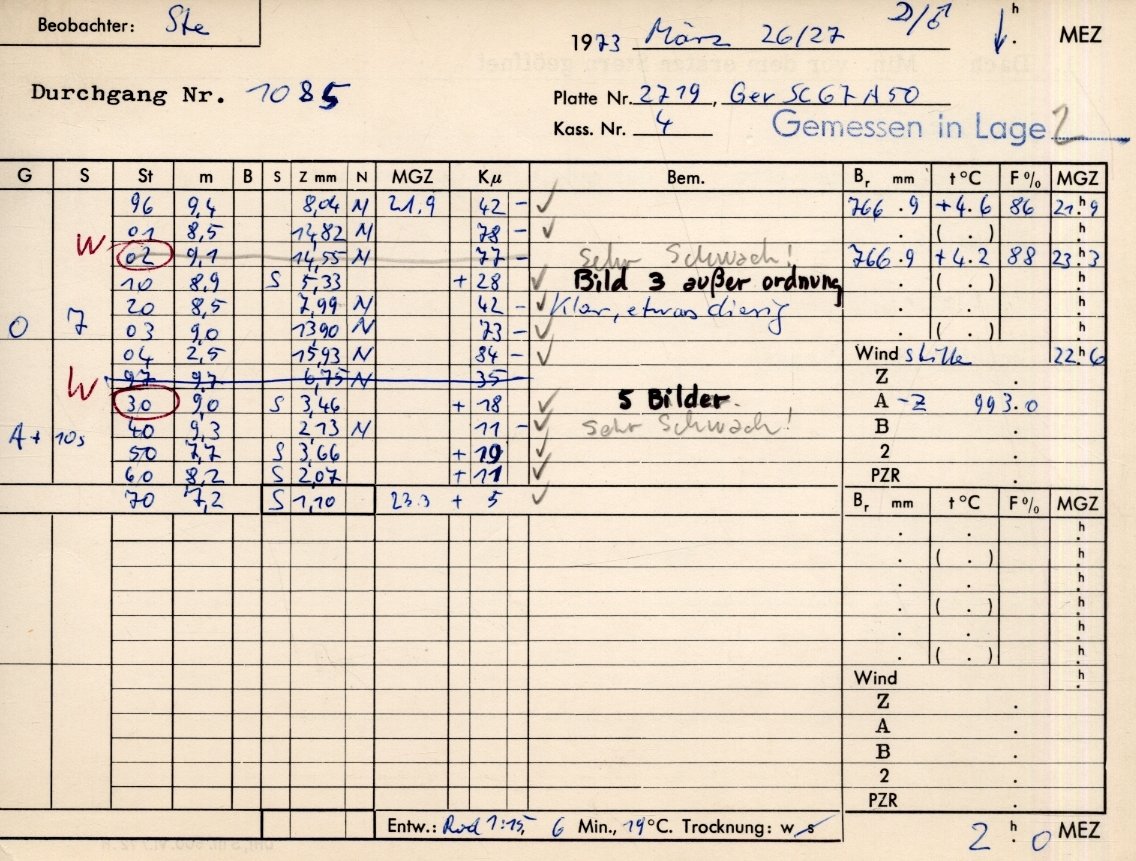 Beobachter: Ste
1973 März 26/27 D/♂ h . MEZ
Durchgang Nr. 1085
Platte Nr. 2719, Ger SC67A50
Kass. Nr. 4
Gemessen in Lage 2
G S St m B S Z mm N MGZ Kμ Bem. Br mm t°C F% MGZ
96 9,4 8,04 N 21,9 42 - ✓ 766.9 +4.6 86 21h9
01 8,5 14,82 N 78 - ✓ . ( . ) h
W 02 9,1 14,55 N 77 - sehr schwach! 766.9 +4.2 88 23h3
10 8,9 S 5,33 + 28 ✓ Bild 3 außer ordnung . ( . ) h
20 8,5 7,99 N 42 - ✓ Klar, etwas diesig . . h
0 7 03 9,0 13,90 N 73 - ✓ . ( . ) h
04 2,5 15,93 N 84 - ✓ Wind stille 22h6
97 9,7 6,75 N 35 - Z .
W 30 9,0 S 3,46 + 18 ✓ 5 Bilder. A -Z 993.0
A+ 10s 40 9,3 2,13 N 11 - ✓ sehr schwach! B .
50 7,7 S 3,66 + 19 ✓ 2 .
60 8,2 S 2,07 + 11 ✓ PZR .
70 7,2 S 1,10 23.3 + 5 ✓ Br mm t°C F% MGZ
. . h
. ( . ) h
. . h
. ( . ) h
. . h
. ( . ) h
Wind h
Z .
A .
B .
2 .
PZR .
Entw.: Rod 1:15, 6 Min., 19°C. Trocknung: w s
2 h . 0 MEZ